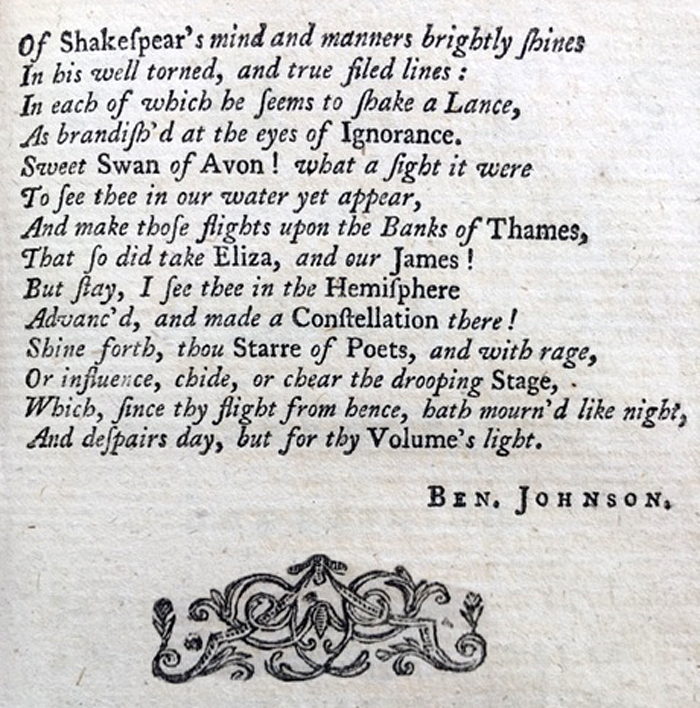 Of Shakeſpear's mind and manners brightly ſhines
In his well torned, and true filed lines :
In each of which he ſeems to ſhake a Lance,
As brandiſh'd at the eyes of Ignorance.
Sweet Swan of Avon ! what a ſight it were
To ſee thee in our water yet appear,
And make thoſe flights upon the Banks of Thames,
That ſo did take Eliza, and our James !
But ſtay, I ſee thee in the Hemiſphere
Advanc'd, and made a Conſtellation there !
Shine forth, thou Starre of Poets, and with rage,
Or influence, chide, or chear the drooping Stage,
Which, ſince thy flight from hence, hath mourn'd like night,
And deſpairs day, but for thy Volume's light.
BEN. JOHNSON.